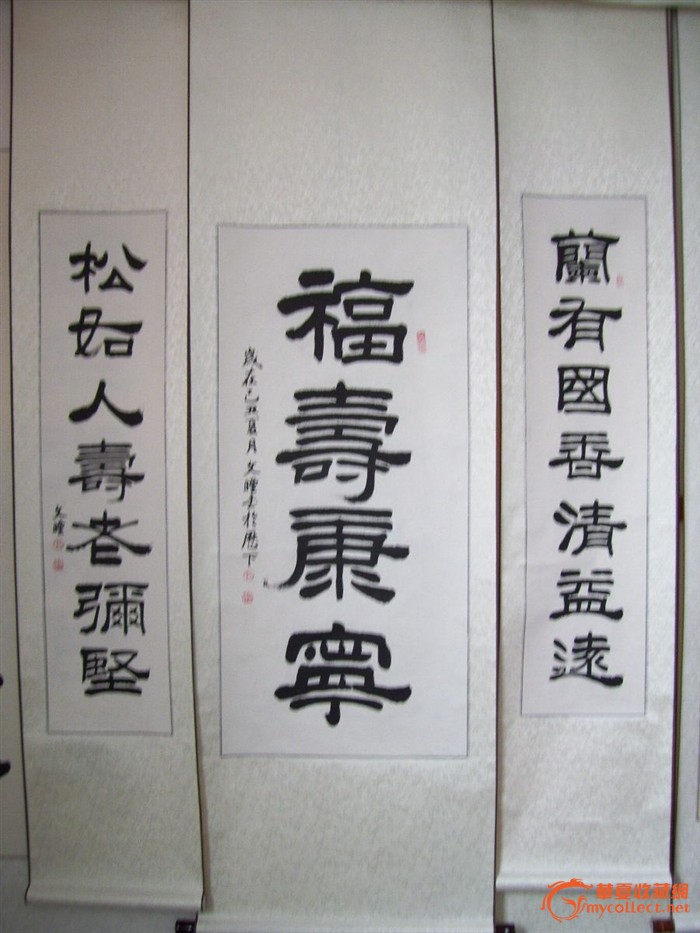 蘭有國香清益遠
福壽康寧
歲在己丑夏月文瞳書於歷下
松如人壽老彌堅
文瞳
華夏收藏網
mycollect.net